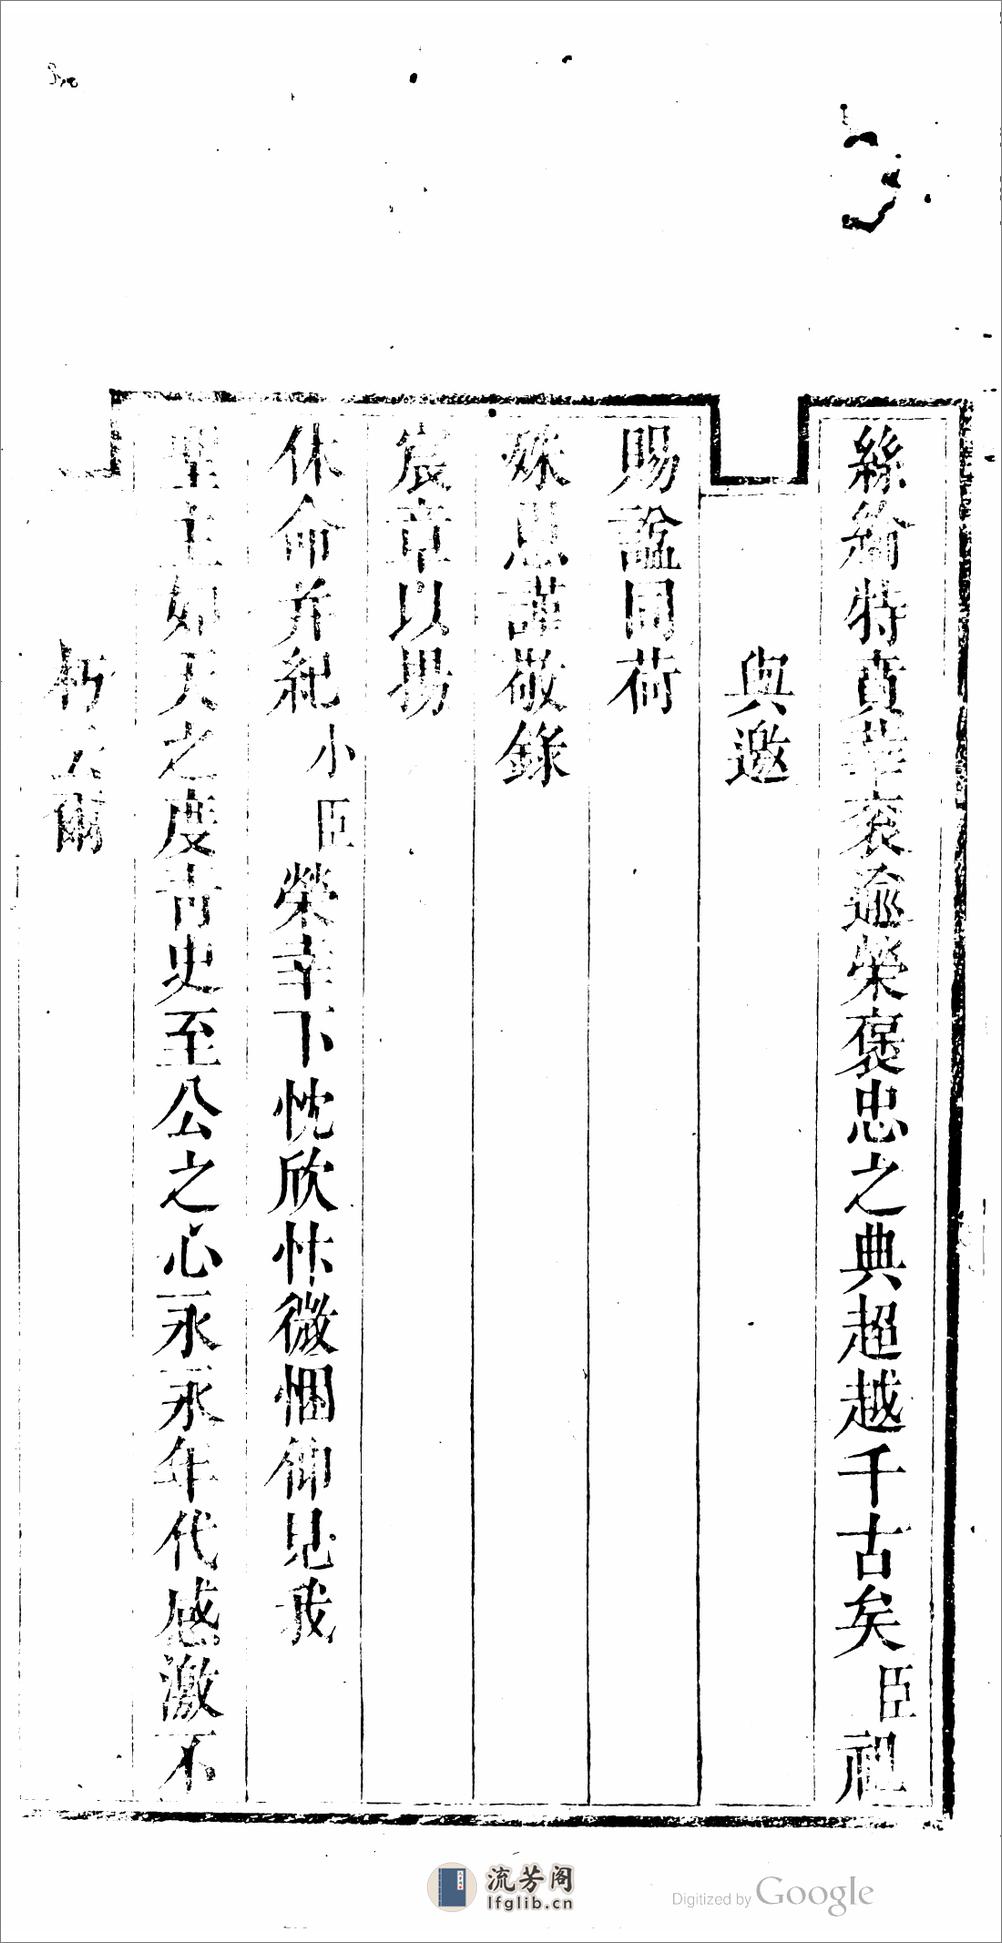 絲綸特賁華袞逾榮褒忠之典超越千古矣臣祖
與邀
賜諡同荷
殊恩謹敬錄
宸章以揚
休命并紀小臣榮幸下忱欣忭微悃仰見我
聖主如天之度靑史至公之心永永年代感激不
朽云爾
流芳阁
lfglib.cn
Digitized by Google